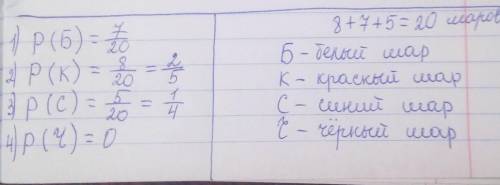 1) P(Б) = 7/20
2) P(К) = 8/20 = 2/5
3) P(С) = 5/20 = 1/4
4) P(Ч) = 0
8+7+5=20 шаров
Б - белый шар
К - красный шар
С - синий шар
Ч - чёрный шар